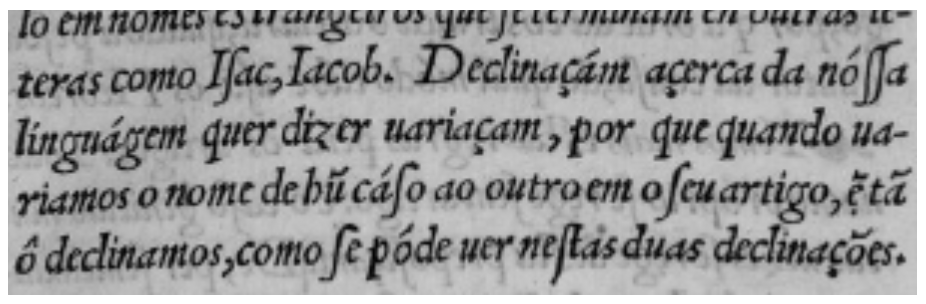 lo em nomes estrangeiros que ſe terminam en outras le-
teras como Iſac, Iacob. Declinaçám açerca da nóſſa
linguágem quer dizer uariaçam, por que quando ua-
riamos o nome de hũ cáſo ao outro em o ſeu artigo, ẽ tã
ô declinamos, como ſe póde uer neſtas duas declinações.